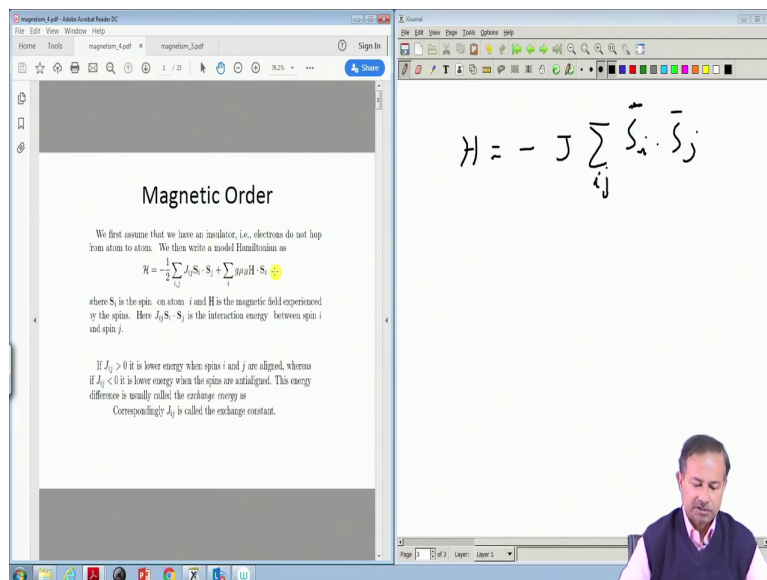 magnetism_4.pdf - Adobe Acrobat Reader DC
File Edit View Window Help
Home Tools magnetism_4.pdf × magnetism_3.pdf Sign In
1 / 23 76.2% Share
Magnetic Order
We first assume that we have an insulator, i.e., electrons do not hop
from atom to atom. We then write a model Hamiltonian as
ℋ = −1/2 ∑_{i,j} J_{ij} S_i · S_j + ∑_i gμ_B H · S_i
where S_i is the spin on atom i and H is the magnetic field experienced
by the spins. Here J_{ij} S_i · S_j is the interaction energy between spin i
and spin j.
If J_{ij} > 0 it is lower energy when spins i and j are aligned, whereas
if J_{ij} < 0 it is lower energy when the spins are antialigned. This energy
difference is usually called the exchange energy as
Correspondingly J_{ij} is called the exchange constant.
Xournal
File Edit View Page Tools Options Help
H = − J ∑_{ij} S̄_i · S̄_j
Page 3 of 3 Layer: Layer 1